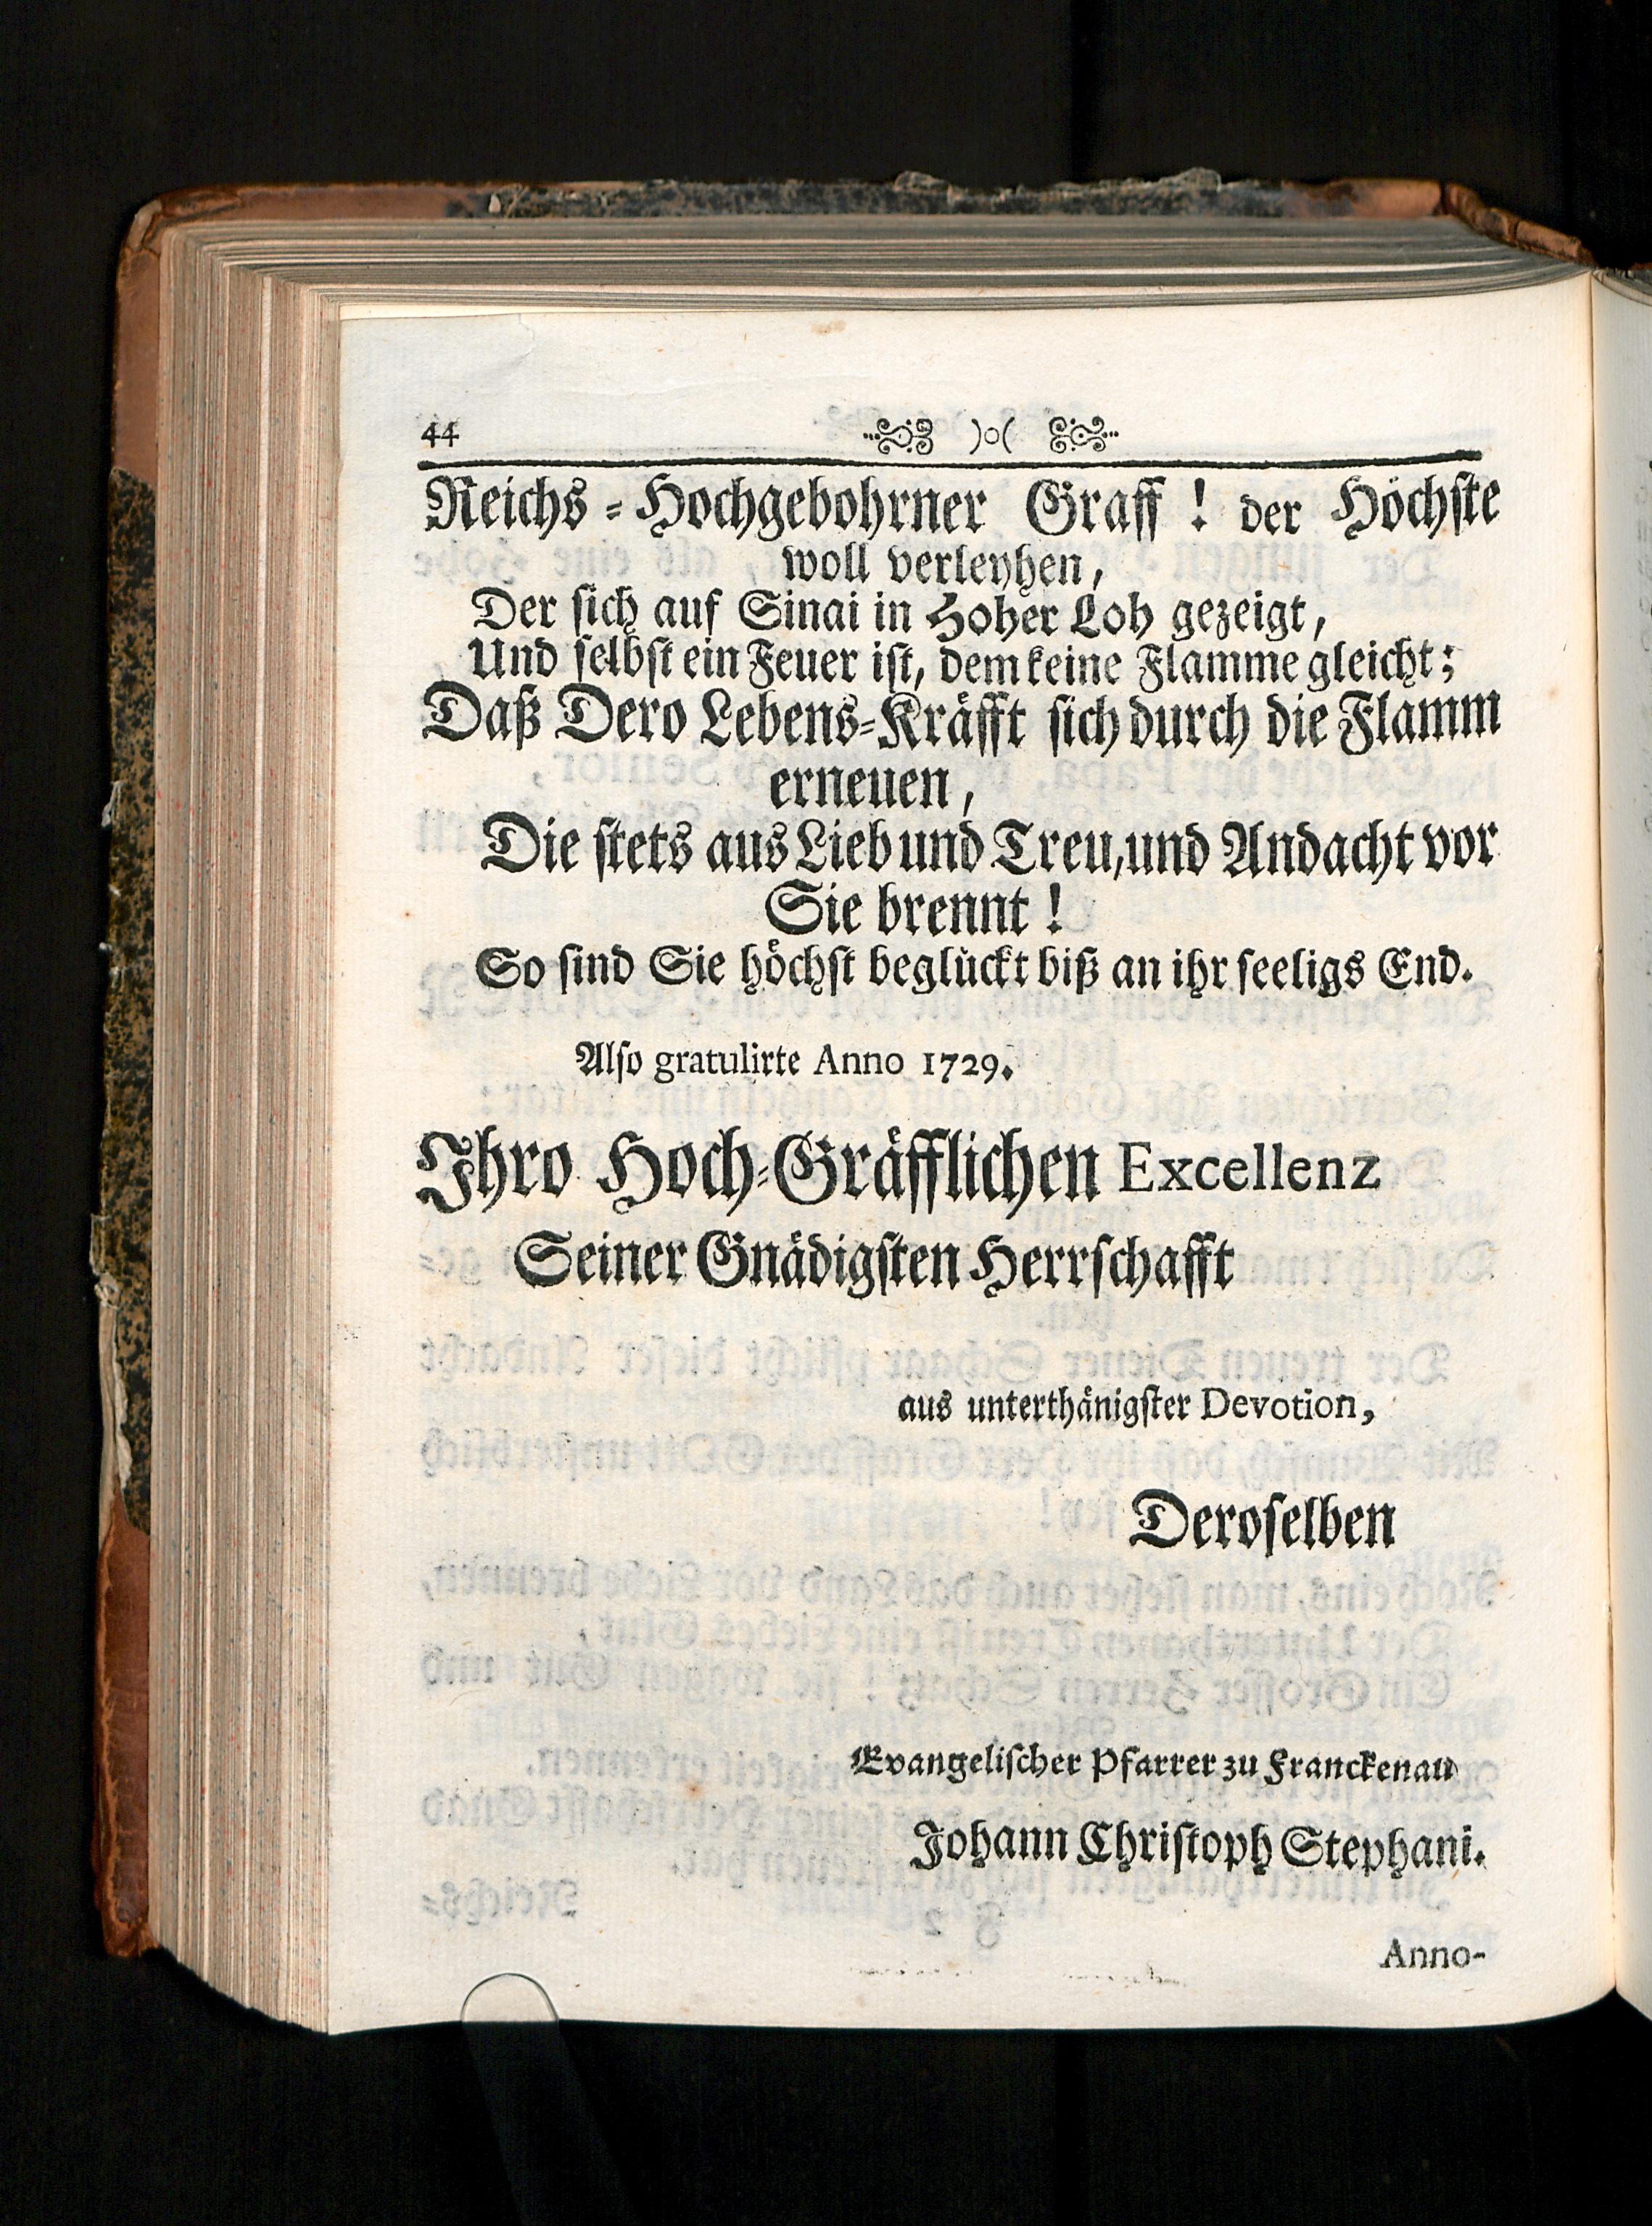 44 )o(
Reichs-Hochgebohrner Graff! der Höchste
woll verleyhen,
Der sich auf Sinai in Hoher Loh gezeigt,
Und selbst ein Feuer ist, dem keine Flamme gleicht;
Daß Dero Lebens-Kräfft sich durch die Flamm
erneuen,
Die stets aus Lieb und Treu, und Andacht vor
Sie brennt!
So sind Sie höchst beglückt biß an ihr seeligs End.
Also gratulirte Anno 1729.
Ihro Hoch-Gräfflichen Excellenz
Seiner Gnädigsten Herrschafft
aus unterthänigster Devotion,
Deroselben
Evangelischer Pfarrer zu Franckenau
Johann Christoph Stephani.
Anno-